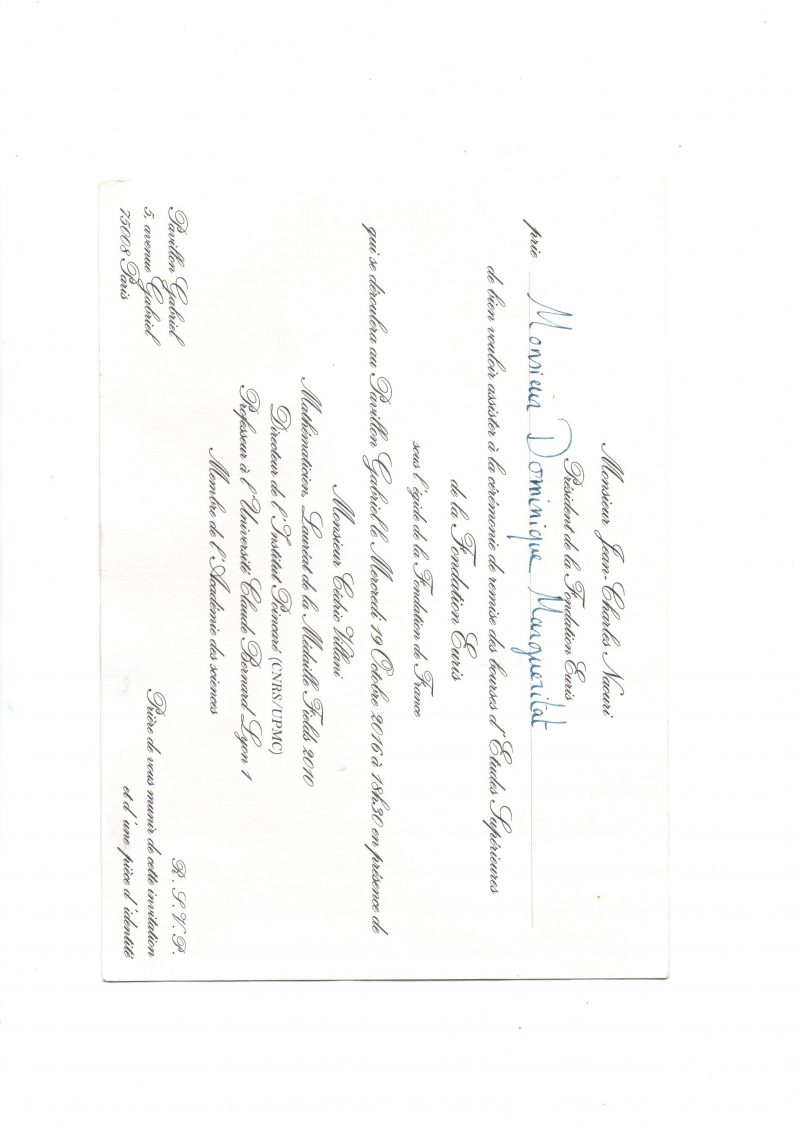 Monsieur Jean-Charles Naouri
Président de la Fondation Euris
prie Monsieur Dominique Marqueritat
de bien vouloir assister à la cérémonie de remise des bourses d'Etudes Supérieures
de la Fondation Euris
sous l'égide de la Fondation de France
qui se déroulera au Pavillon Gabriel le Mercredi 19 Octobre 2016 à 18h30 en présence de
Monsieur Cédric Villani
Mathématicien, Lauréat de la Médaille Fields 2010
Directeur de l'Institut Poincaré (CNRS/UPMC)
Professeur à l'Université Claude Bernard Lyon 1
Membre de l'Académie des sciences
Pavillon Gabriel
5, avenue Gabriel
75008 Paris
R.S.V.P.
Prière de vous munir de cette invitation
et d'une pièce d'identité